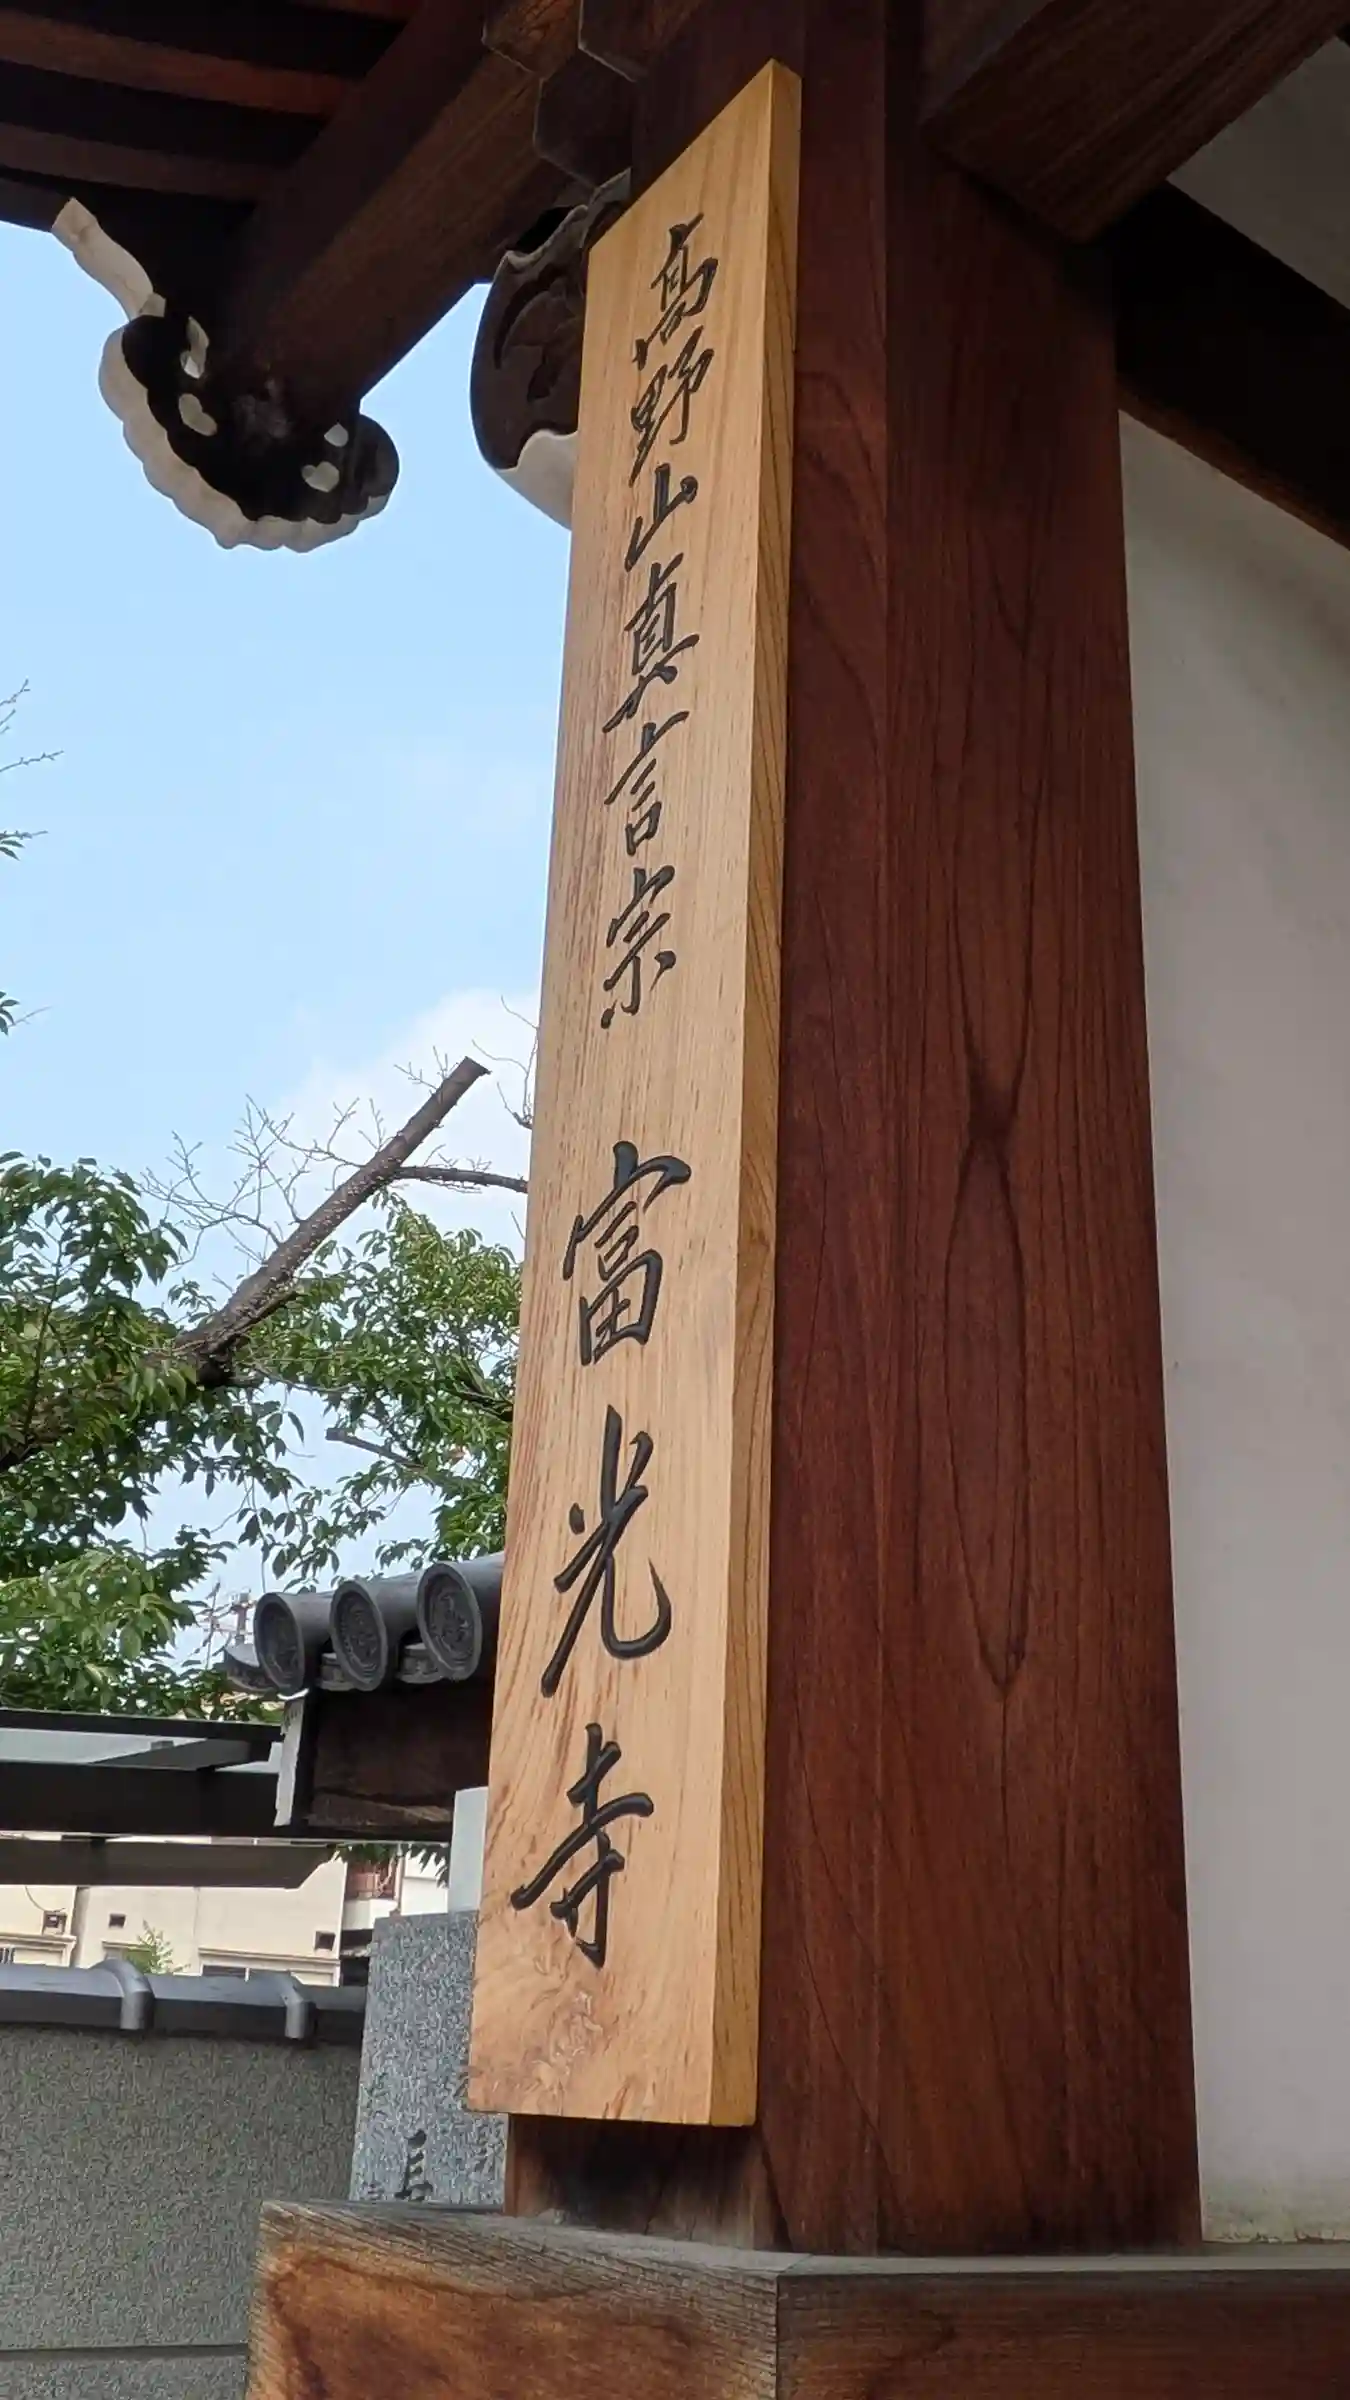 髙野山真言宗 富光寺
長